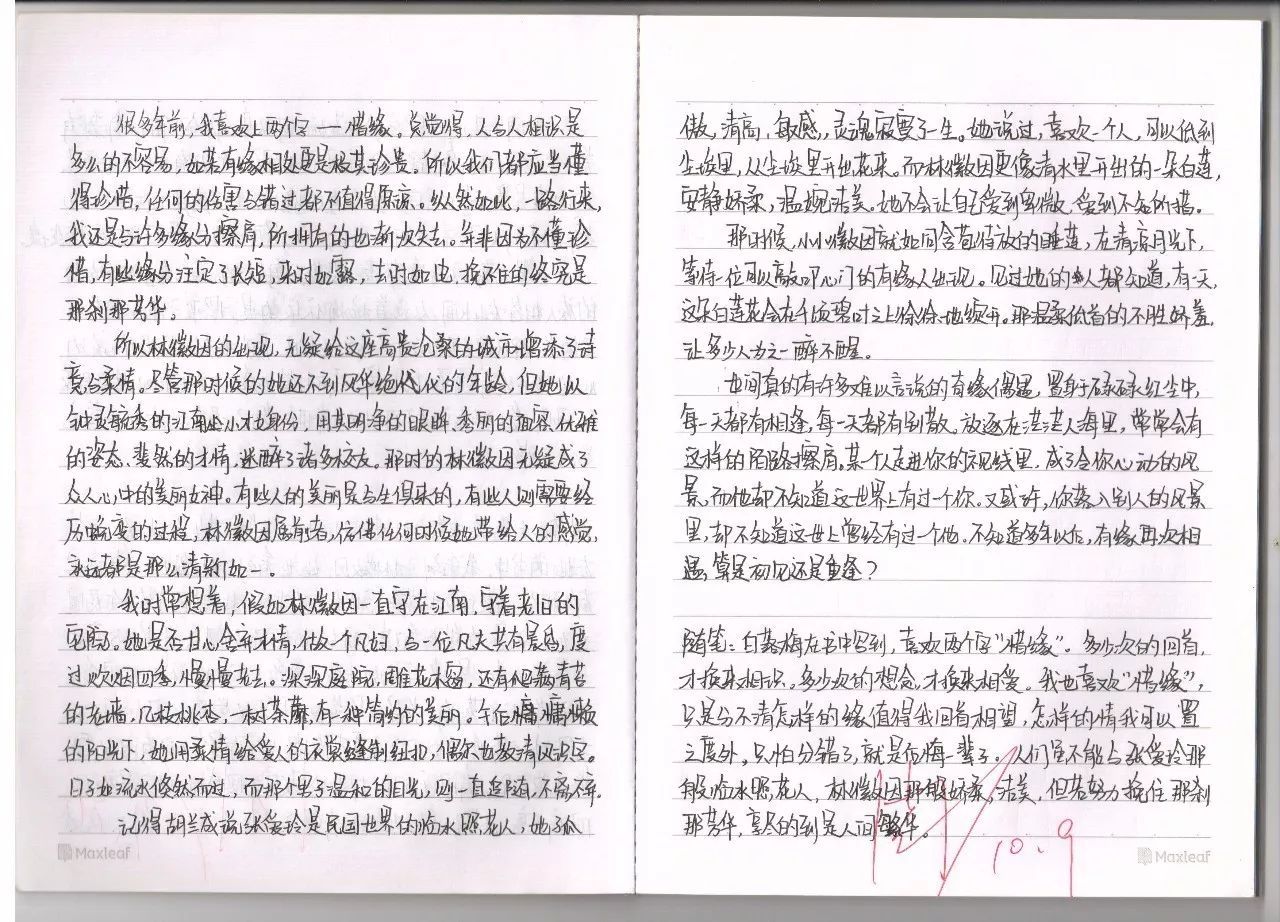 很多年前,我喜欢上两个字——惜缘。总觉得,人与人相识是
多么的不容易,如若有缘相处更是极其珍贵。所以我们都应当懂
得珍惜,任何的伤害与错过都不值得原谅。纵然如此,一路行来,
我还是与许多缘分擦肩,所拥有的也渐次失去。并非因为不懂珍
惜,有些缘分注定了长短,来时如露,去时如电,挽不住的终究是
那刹那芳华。
所以林徽因的出现,无疑给这座高贵沧桑的城市增添了诗
意与柔情。尽管那时候的她还不到风华绝代的年龄,但她以
钟灵毓秀的江南小才女身份,用其明净的眼眸、秀丽的面容、优雅
的姿态、斐然的才情,迷醉了诸多校友。那时的林徽因无疑成了
众人心中的美丽女神。有些人的美丽是与生俱来的,有些人则需要经
历蜕变的过程,林徽因属前者,仿佛任何时候她带给人的感觉,
永远都是那么清新如一。
我时常想着,假如林徽因一直守在江南,守着老旧的
宅院。她是否甘心舍弃才情,做一个凡妇,与一位凡夫共有晨昏,度
过炊烟四季,慢慢老去。深深庭院,雕花木窗,还有爬满青苔
的老墙,几枝桃杏,一树荼蘼,有一种简约的美丽。午后慵慵懒懒
的阳光下,她用柔情给爱人的衣裳缝制纽扣,偶尔也教清风识字。
日子如流水悠然而过,而那个男子温和的目光,则一直追随,不离不弃。
记得胡兰成说张爱玲是民国世界的临水照花人,她孤
傲,清高,敏感,灵魂寂寞了一生。她说过,喜欢一个人,可以低到
尘埃里,从尘埃里开出花来。而林徽因更像清水里开出的一朵白莲,
安静娇柔,温婉洁美。她不会让自己受到卑微,受到不知所措。
那时候,小小徽因就如同含苞待放的睡莲,在清凉月光下,
等待一位可以敲叩心门的有缘人出现。见过她的人都知道,有一天,
这朵白莲花会在千顷碧叶之上徐徐地绽开。那温柔低首的不胜娇羞,
让多少人为之一醉不醒。
世间真的有许多难以言说的有缘偶遇,置身于碌碌红尘中,
每一天都有相逢,每一天都有别散。放逐在茫茫人海里,常常会有
这样的陌路擦肩。某个人走进你的视线里,成了令你心动的风
景,而他却不知道这世界上有过一个你。又或许,你落入别人的风景
里,却不知道这世上曾经有过一个他。不知道多年以后,有缘再次相
遇,算是初见还是重逢?
随笔:白落梅在书中写到,喜欢两个字“惜缘”。多少次的回首,
才换来相识。多少次的想念,才换来相爱。我也喜欢“惜缘”,
只是分不清怎样的缘值得我回首相望,怎样的情我可以置
之度外。只怕分错了,就是后悔一辈子。人们虽不能与张爱玲那
般临水照花人,林徽因那般娇柔,洁美,但若努力挽住那刹
那芳华,享尽的到是人间繁华。
10.9
Maxleaf
Maxleaf